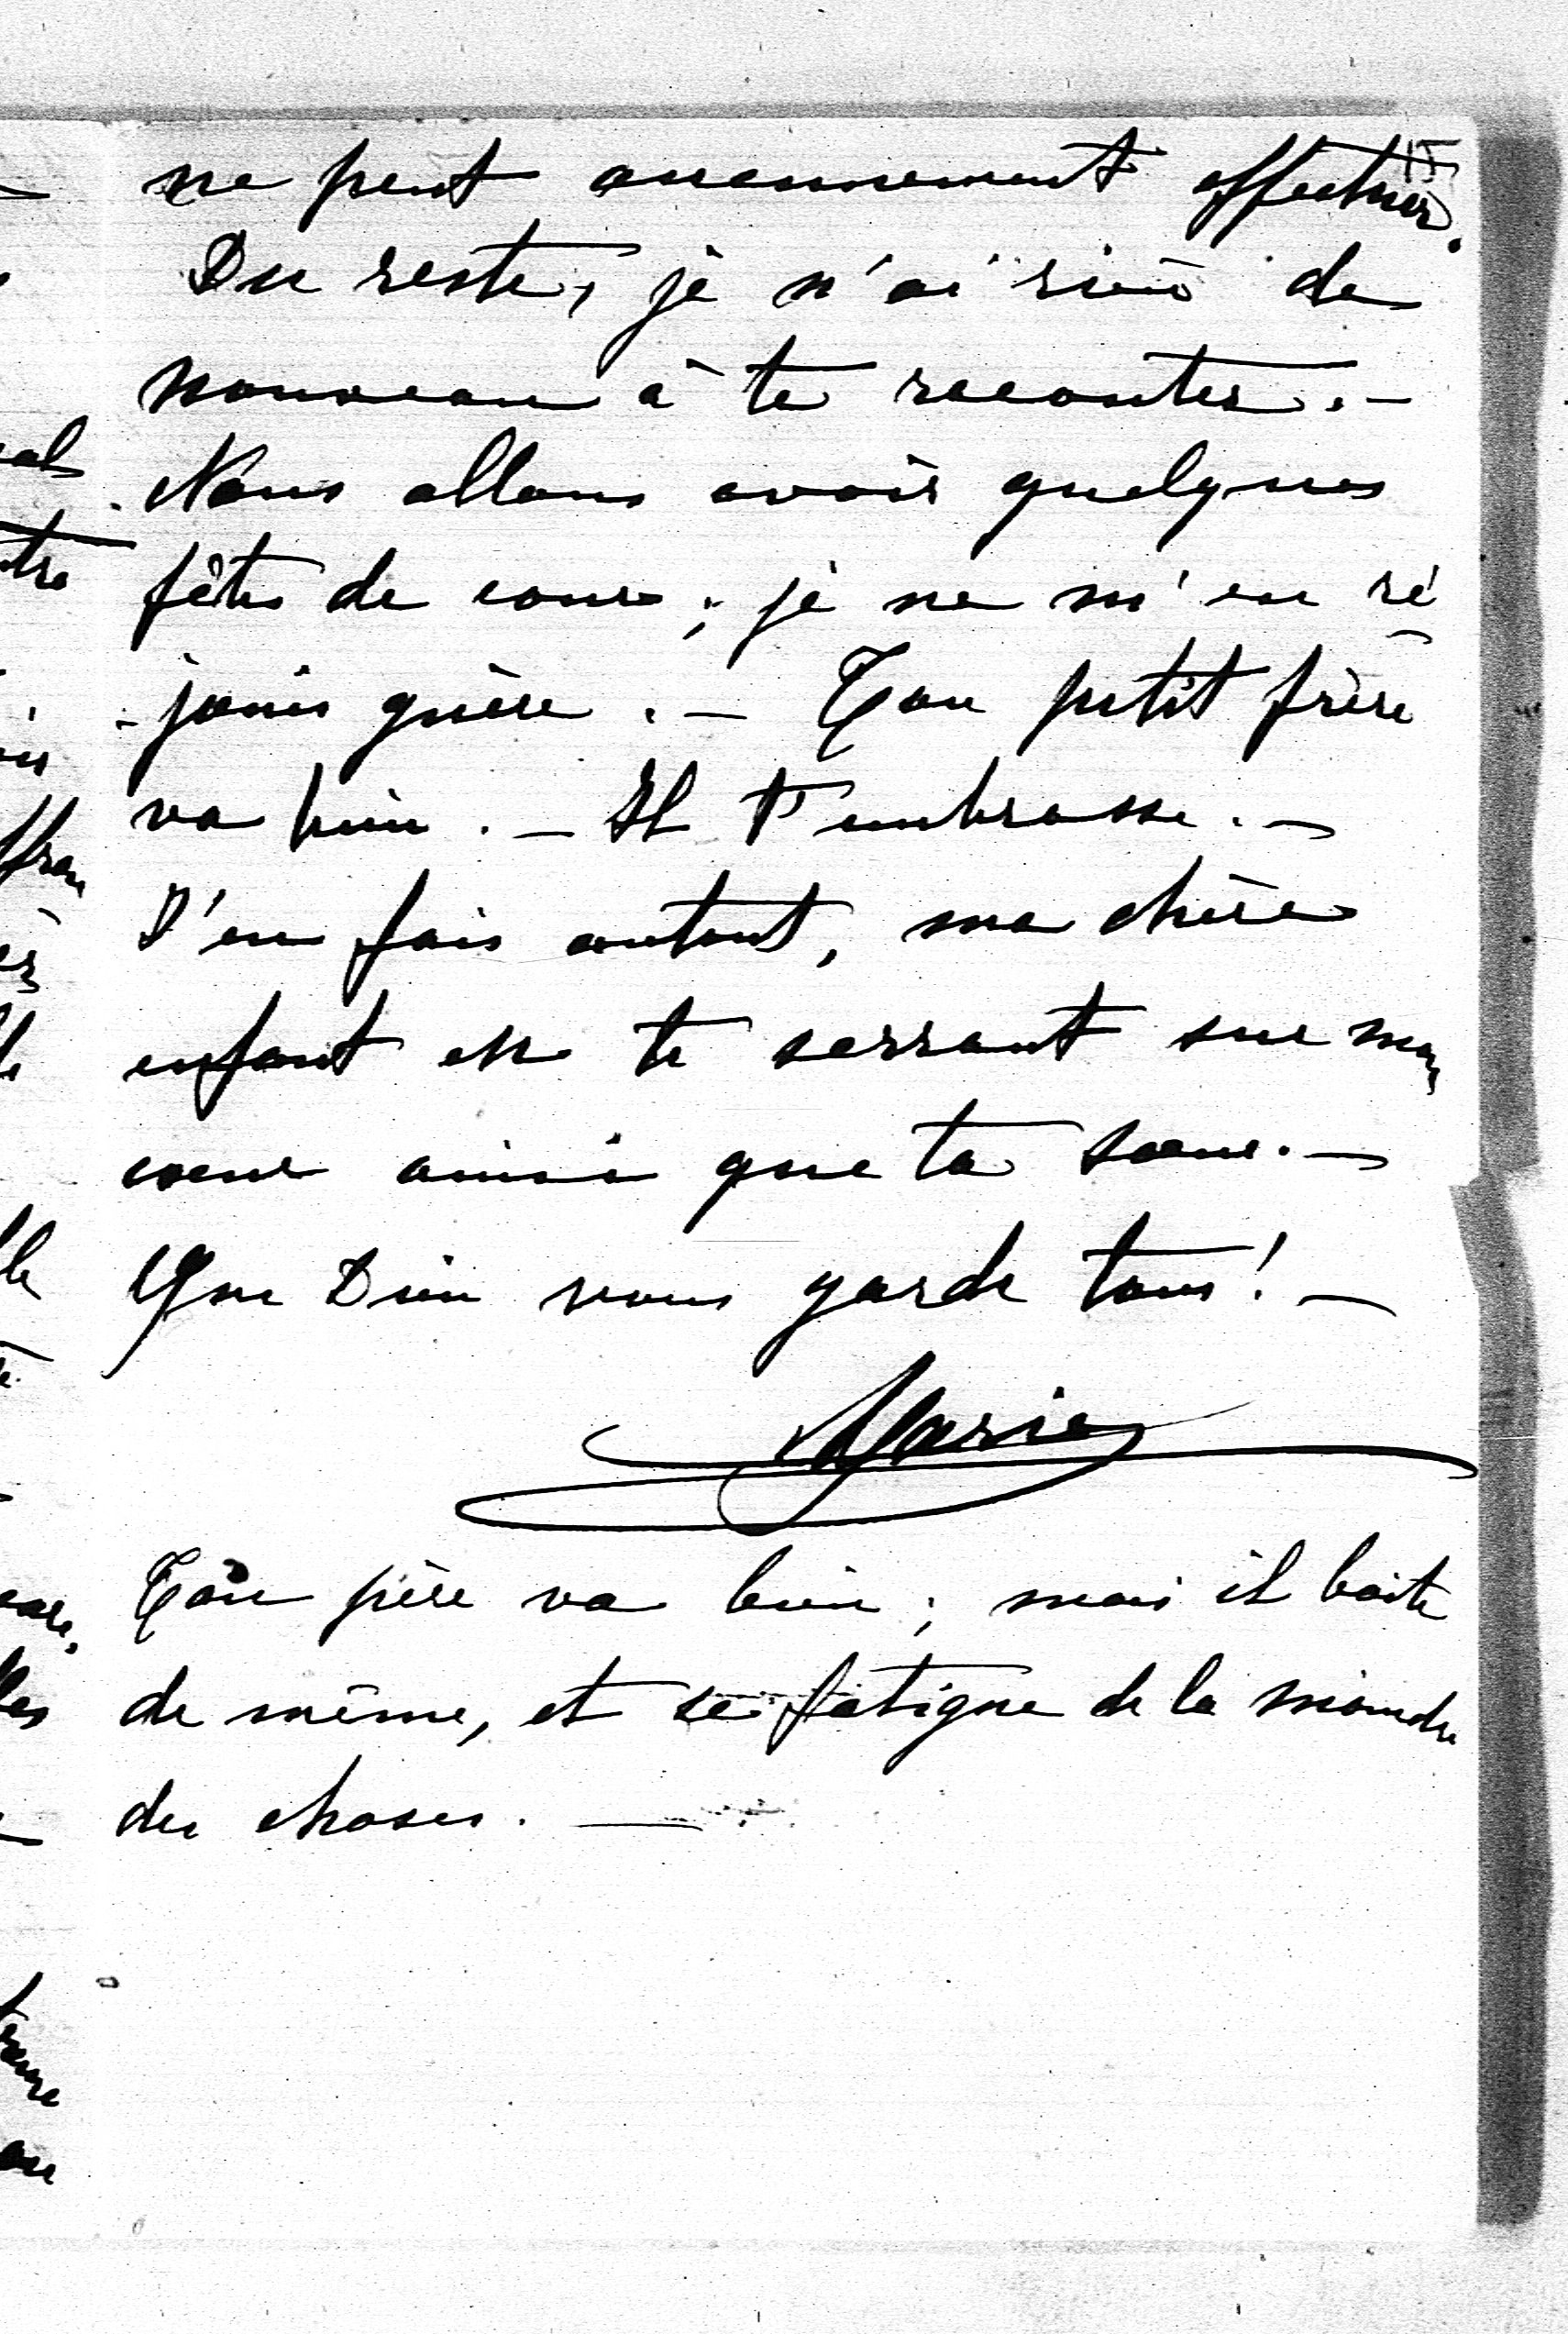 ne peut aucunement effectuer.
Du reste, je n'ai rien de
nouveau à te raconter. —
Nous allons avoir quelques
fêtes de cour ; je ne m'en ré
-jouis guère. — Ton petit frère
va bien. — Il t'embrasse. —
J'en fais autant, ma chère
enfant en te serrant sur mon
coeur ainsi que ta soeur. —
Que Dieu vous garde tous ! —
Marie
Ton père va bien ; mais il boite
de même, et se fatigue de la moindre
des choses. —